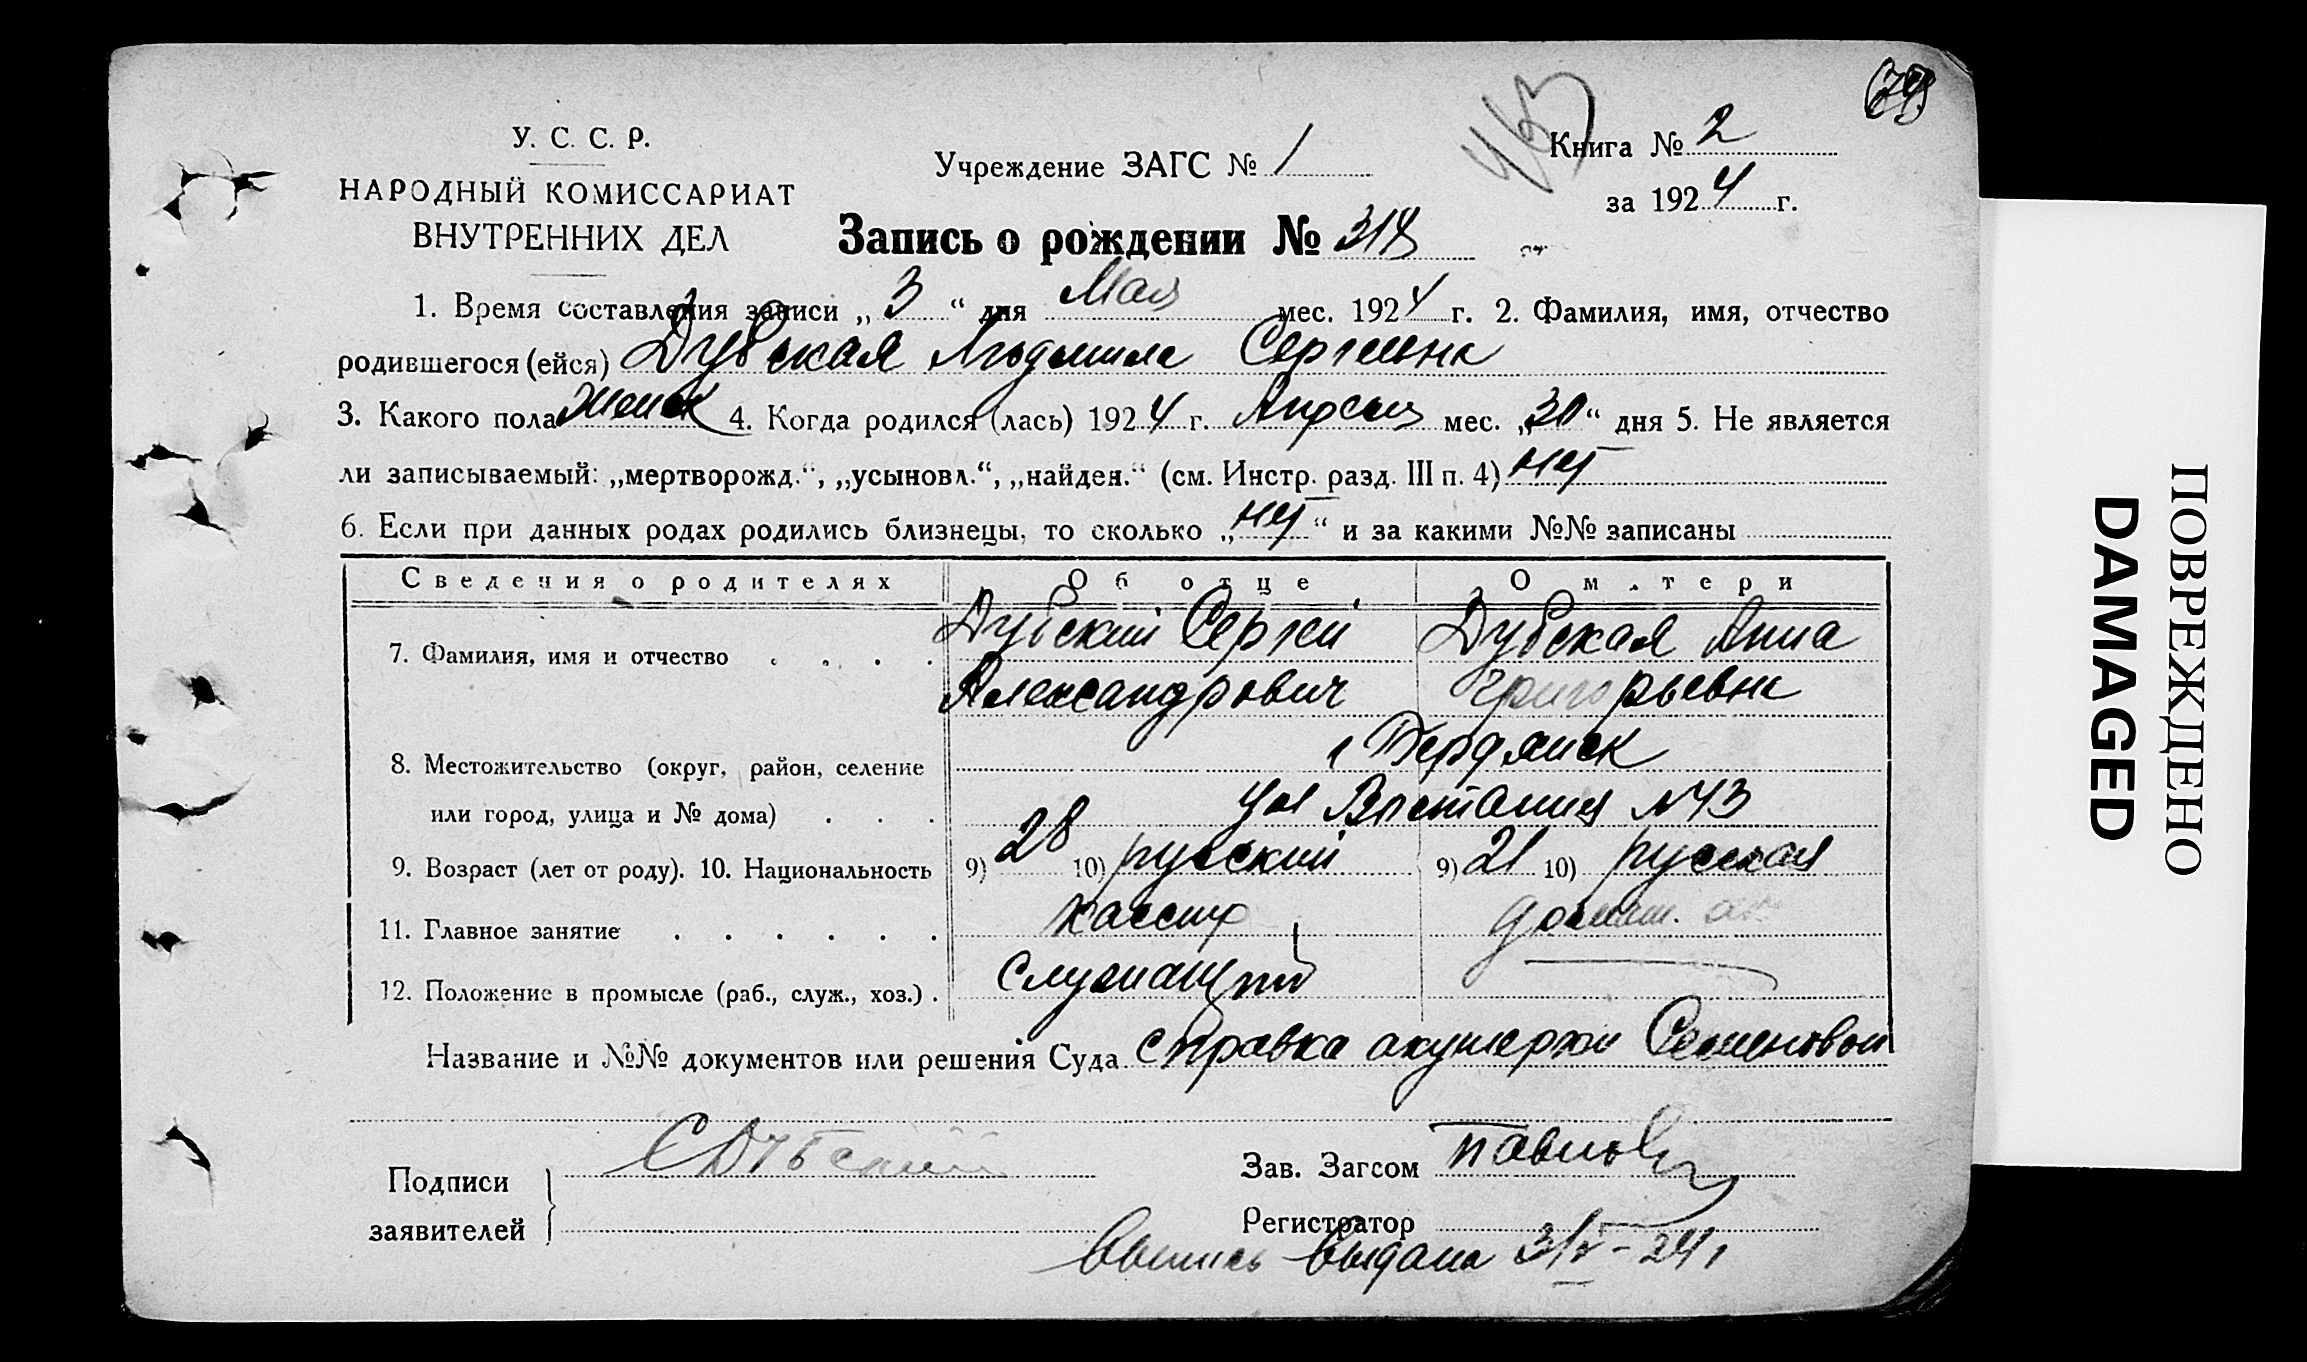 У. С. С. Р.
НАРОДНЫЙ КОМИССАРИАТ
ВНУТРЕННИХ ДЕЛ
Учреждение ЗАГС № 1
Книга № 2
за 1924 г.
Запись о рождении № 318
1. Время составления записи „ 3 “ дня Мая мес. 1924 г. 2. Фамилия, имя, отчество
родившегося (ейся) Дубская Людмила Сергеевна
3. Какого пола женск 4. Когда родился (лась) 1924 г. Апреля мес. „30“ дня 5. Не является
ли записываемый: „мертворожд.“, „усыновл.“, „найден.“ (см. Инстр. разд. III п. 4) нет
6. Если при данных родах родились близнецы, то сколько „нет“ и за какими №№ записаны
Сведения о родителях Об отце О м.тери
7. Фамилия, имя и отчество . . . . Дубский Сергей Дубская Анна
Александрович Григорьевна
8. Местожительство (округ, район, селение г Бердянск
или город, улица и № дома) . . . ул Востания №43
9. Возраст (лет от роду). 10. Национальность 9) 28 10) русский 9) 21 10) русская
11. Главное занятие . . . . . . кассир домаш.
12. Положение в промысле (раб., служ., хоз.) . служащий
Название и №№ документов или решения Суда справка акушерки Семеновой
Подписи
заявителей
СДубский
Зав. Загсом Павлов
Регистратор
Выпись выдана 3/V-24 г
ПОВРЕЖДЕНО
DAMAGED